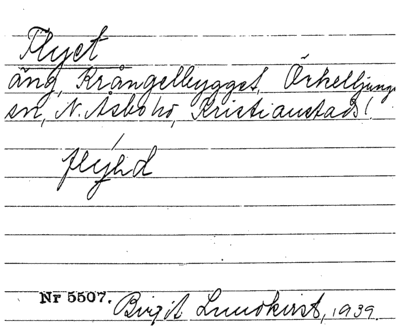 Flyet
äng, Krångelbygget, Örkelljunga
sn, N. Åsbo hd, Kristianstads l
Nr 5507. Birgit Lundkvist, 1939